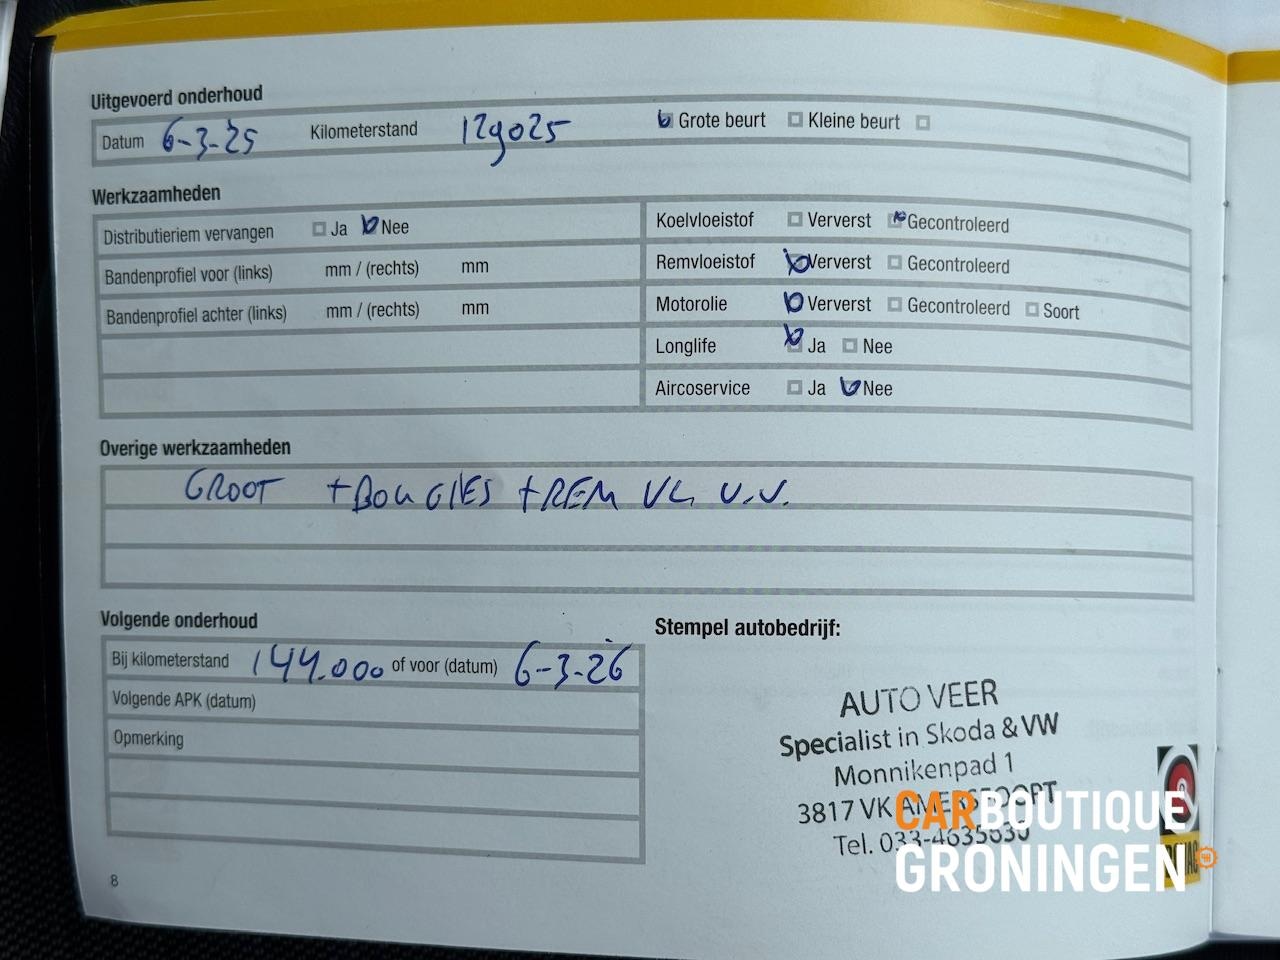 Uitgevoerd onderhoud
Datum 6-3-25 Kilometerstand 129025 Grote beurt Kleine beurt
Werkzaamheden
Distributieriem vervangen Ja Nee
Bandenprofiel voor (links) mm / (rechts) mm
Bandenprofiel achter (links) mm / (rechts) mm
Koelvloeistof Ververst Gecontroleerd
Remvloeistof Ververst Gecontroleerd
Motorolie Ververst Gecontroleerd Soort
Longlife Ja Nee
Aircoservice Ja Nee
Overige werkzaamheden
GROOT +BOUGIES +REM VL V.V.
Volgende onderhoud
Bij kilometerstand 144.000 of voor (datum) 6-3-26
Volgende APK (datum)
Opmerking
Stempel autobedrijf:
AUTO VEER
Specialist in Skoda & VW
Monnikenpad 1
3817 VK AMERSFOORT
Tel. 033-4635630
CARBOUTIQUE
GRONINGEN
8